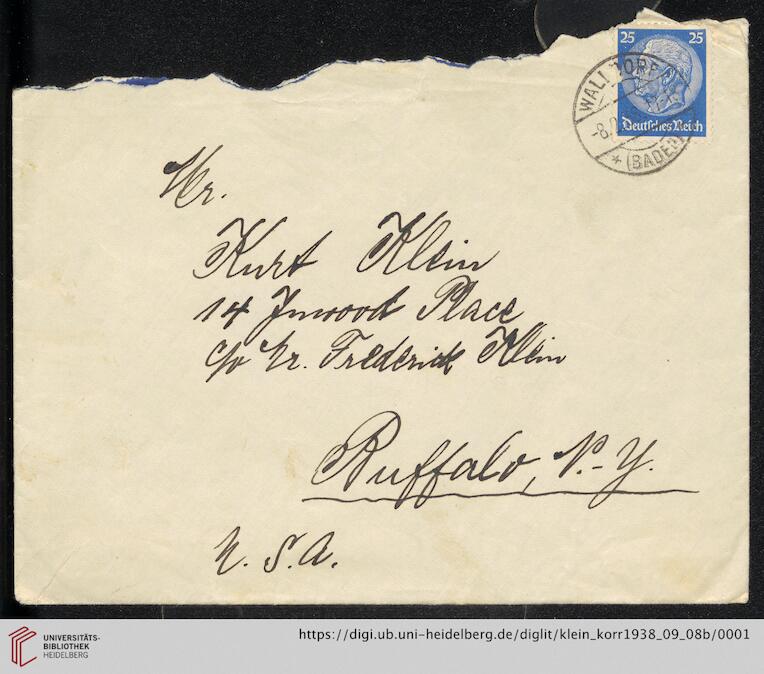 25 25
Deutsches Reich
WALLDORF
-8.
* (BADEN)
Mr.
Kurt Klein
14 Inwood Place
c/o Mr. Frederick Klein
Buffalo, N.-Y.
U. S. A.
UNIVERSITÄTS-
BIBLIOTHEK
HEIDELBERG
https://digi.ub.uni-heidelberg.de/diglit/klein_korr1938_09_08b/0001